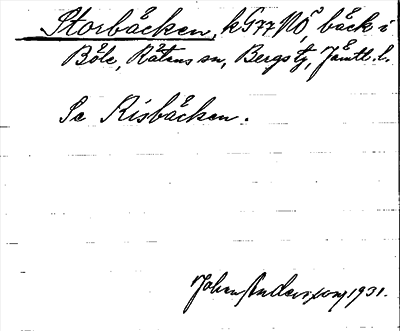 Storbäcken, k677NÖ, bäck i
Böle, Rätans sn, Bergs tg, Jämtl. l.
Se Risbäcken.
Johan Anderson 1931.